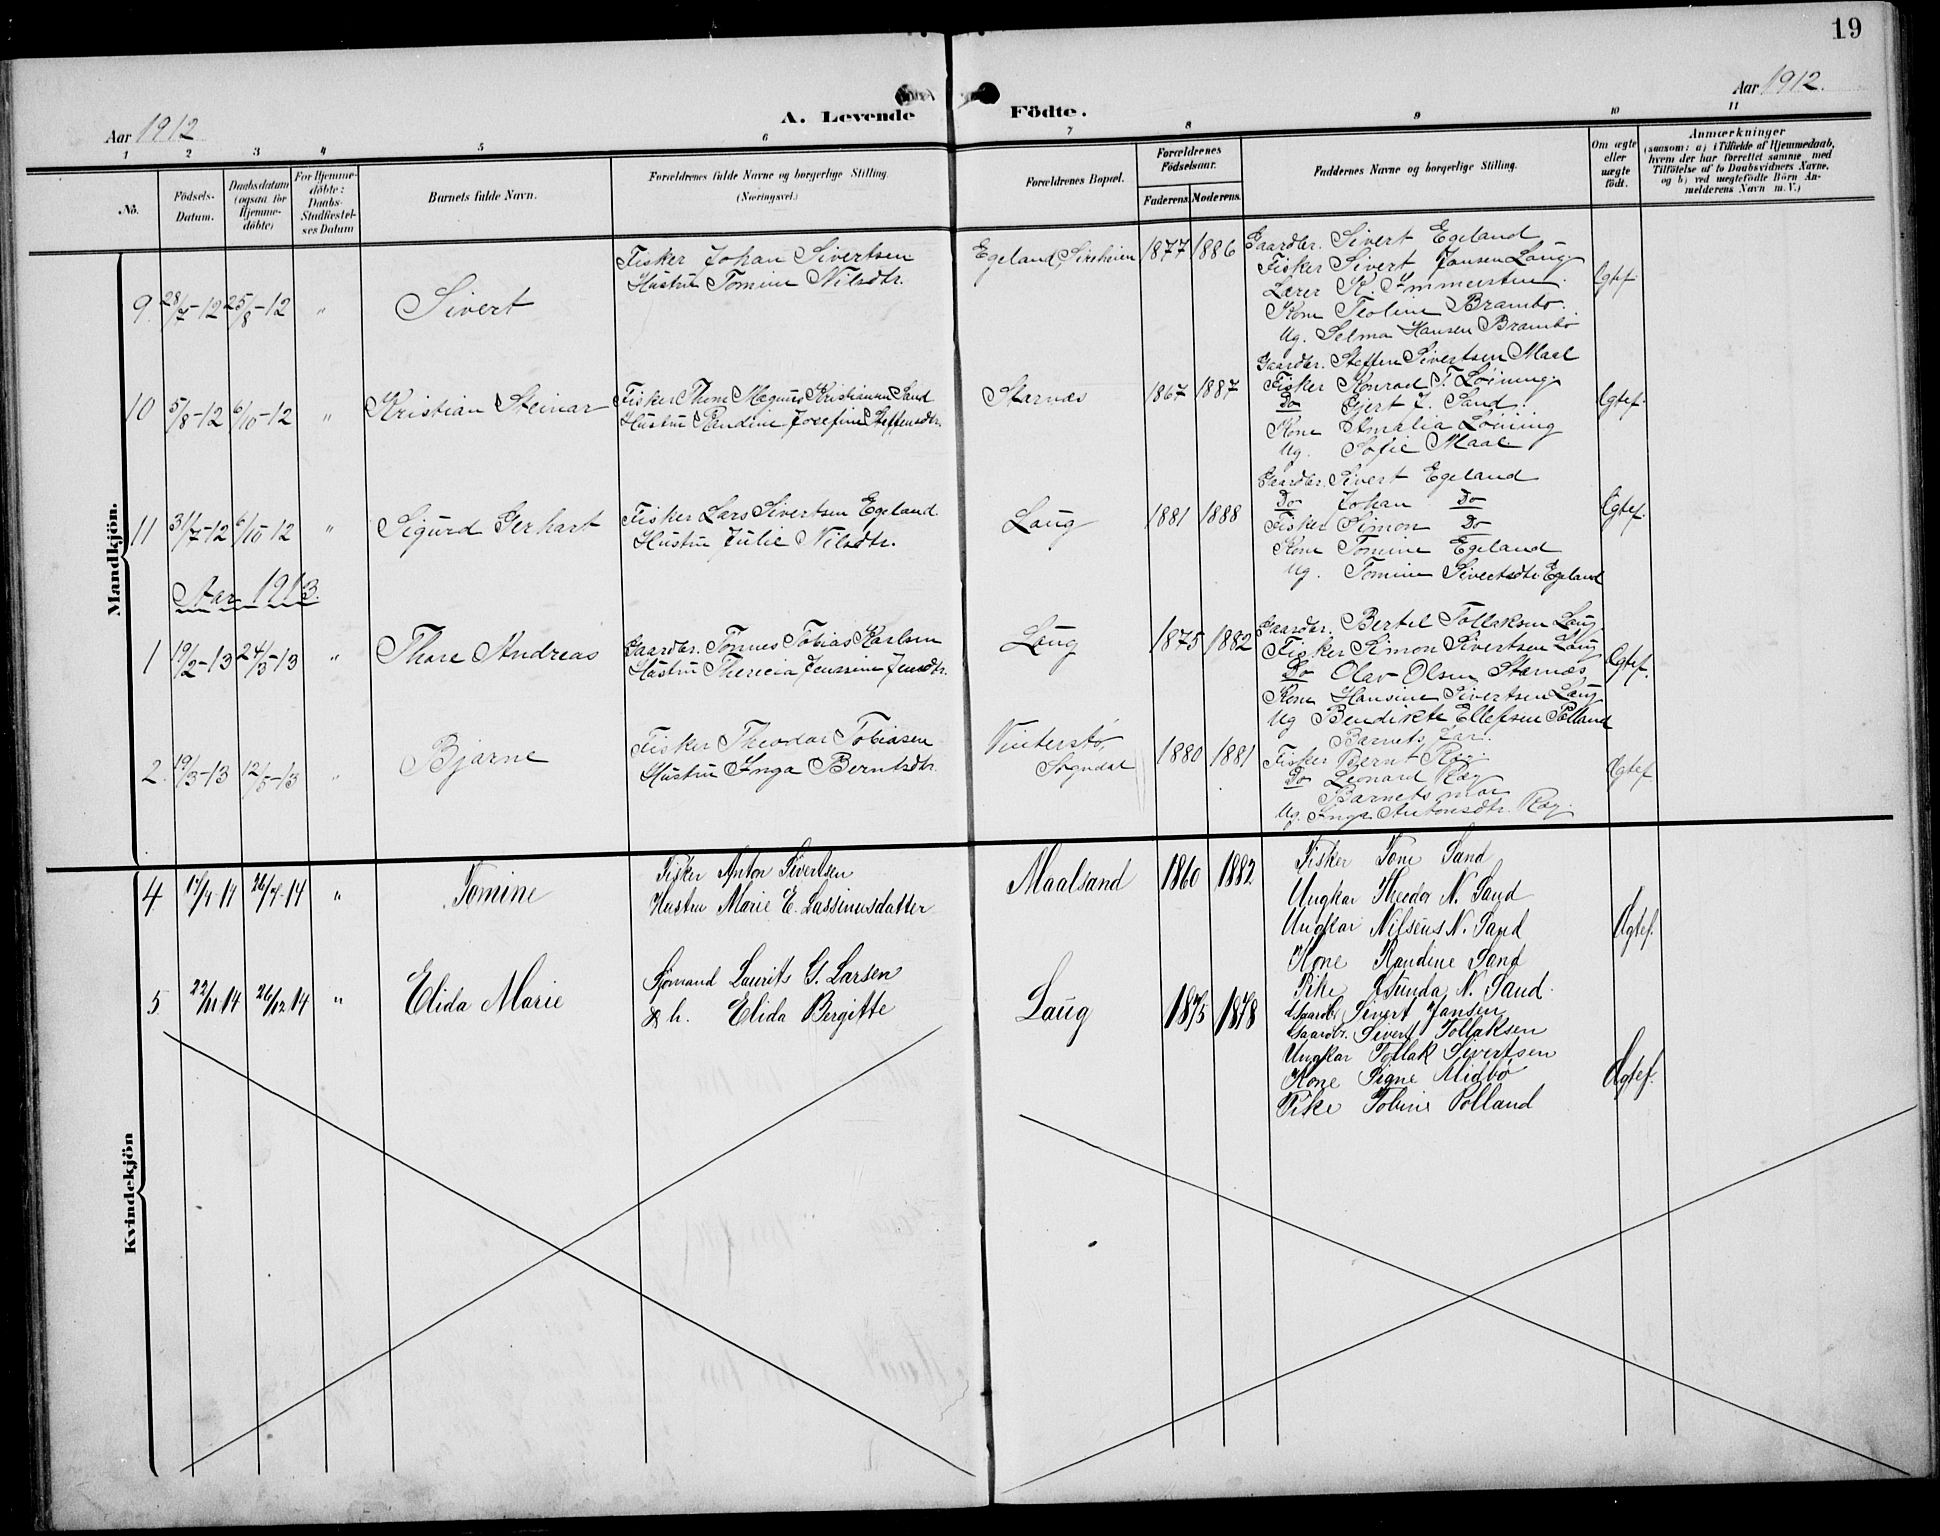 19
Aar 1912
A. Levende Födte.
Aar 1912.
1 2 3 4 5 6 7 8 9 10 11
No.
Födsels-Datum.
Daabsdatum (ogsaa for Hjemme-döbte)
For Hjemme-döbte: Daabs-Stadfæstel-ses Datum
Barnets fulde Navn.
Forældrenes fulde Navne og borgerlige Stilling.
(Næringsvei.)
Forældrenes Bopæl.
Forældrenes Födselsaar.
Faderens. Moderens.
Faddernes Navne og borgerlige Stilling.
Om ægte eller uægte födt.
Anmærkninger
(saasom: a) i Tilfælde af Hjemmedaab,
hvem der har forrettet samme, med
Tilföielse af to Daabsvidners Navne.
og b) ved uægtefödte Börn An-
melderens Navn m. V.)
Mandkjön.
9. 28/7-12 25/8-12 " Sivert
Fisker Johan Sivertsen
Hustru Tomine Nilsdtr.
Egeland, Sireheien 1877 1886
Gaardbr. Sivert Egeland
Fisker Sivert Jansen Laug
Lærer K.
Kone Teoline Brambo.
Ug. Selma Hansen Brambo
Ægtef.
10 5/8-12 6/10-12 " Kristian Steinar
Fisker Thom Magnus Kristiansen Sand
Hustru Randine Josefine Steffensdtr.
Starnes 1867 1887
Gaardbr. Steffen Sivertsen Maal
Fisker Konrad T. Löining.
Do Gjert J. Sand.
Kone Amalia Löining
Ug. Sofie Maal.
Ægtef.
11 31/7-12 6/10-12 " Sigurd Gerhart
Fisker Lars Sivertsen Egeland.
Hustru Julie Nilsdtr.
Laug 1881 1888
Gaardbr. Sivert Egeland
Do Johan Do
Fisker Simon Do
Kone Tomine Egeland
Ug. Tomine Sivertsdtr. Egeland
Ægtef.
Aar 1913.
1 19/2-13 24/3-13 " Thore Andreas
Gaardbr. Tönnes Tobias Karlsen
Hustru Therecia Jenssine Jensdtr.
Laug 1875 1882
Gaardbr. Bertel Tollaksen Laug
Fisker Simon Sivertsen Laug
Do Olav Olsen Starnes
Kone Hansine Sivertsen Laug
Ug Bendikte Ellefsen Polland
Ægtef.
2. 19/3-13 12/5-13 " Bjarne
Fisker Theodor Tobiasen
Hustru Inga Berntsdtr.
Vinterstö, Sogndal 1880 1881
Barnets Far.
Fisker BerntRæg
Do Leonard Ræg
Barnets mor
Ug. Inga Antonsdtr. Ræg.
Ægtef.
Kvindekjön
4 26/4-14 " Tomine
Fisker Anton Sivertsen
Hustru Marie E. Lassinusdatter
Maalsand 1860 1882
Fisker Tom Sand
Ungkar Theodor N. Sand
Ungkar Nilseus N. Sand
Kone Randine Sand
Pike Gunda N. Sand.
Ægtef.
5 22/11 14 26/12 14 " Elida Marie
Sjømand Laurits G. Larsen
& h. Elida Bergitte
Laug 1875 1878
Gaardbr. Sivert Jansen
Gaardbr. Sivert Tollaksen
Ungkar Tollak Sivertsen
Kone Signe Midbø
Pike Tobine Polland
Ægtef.